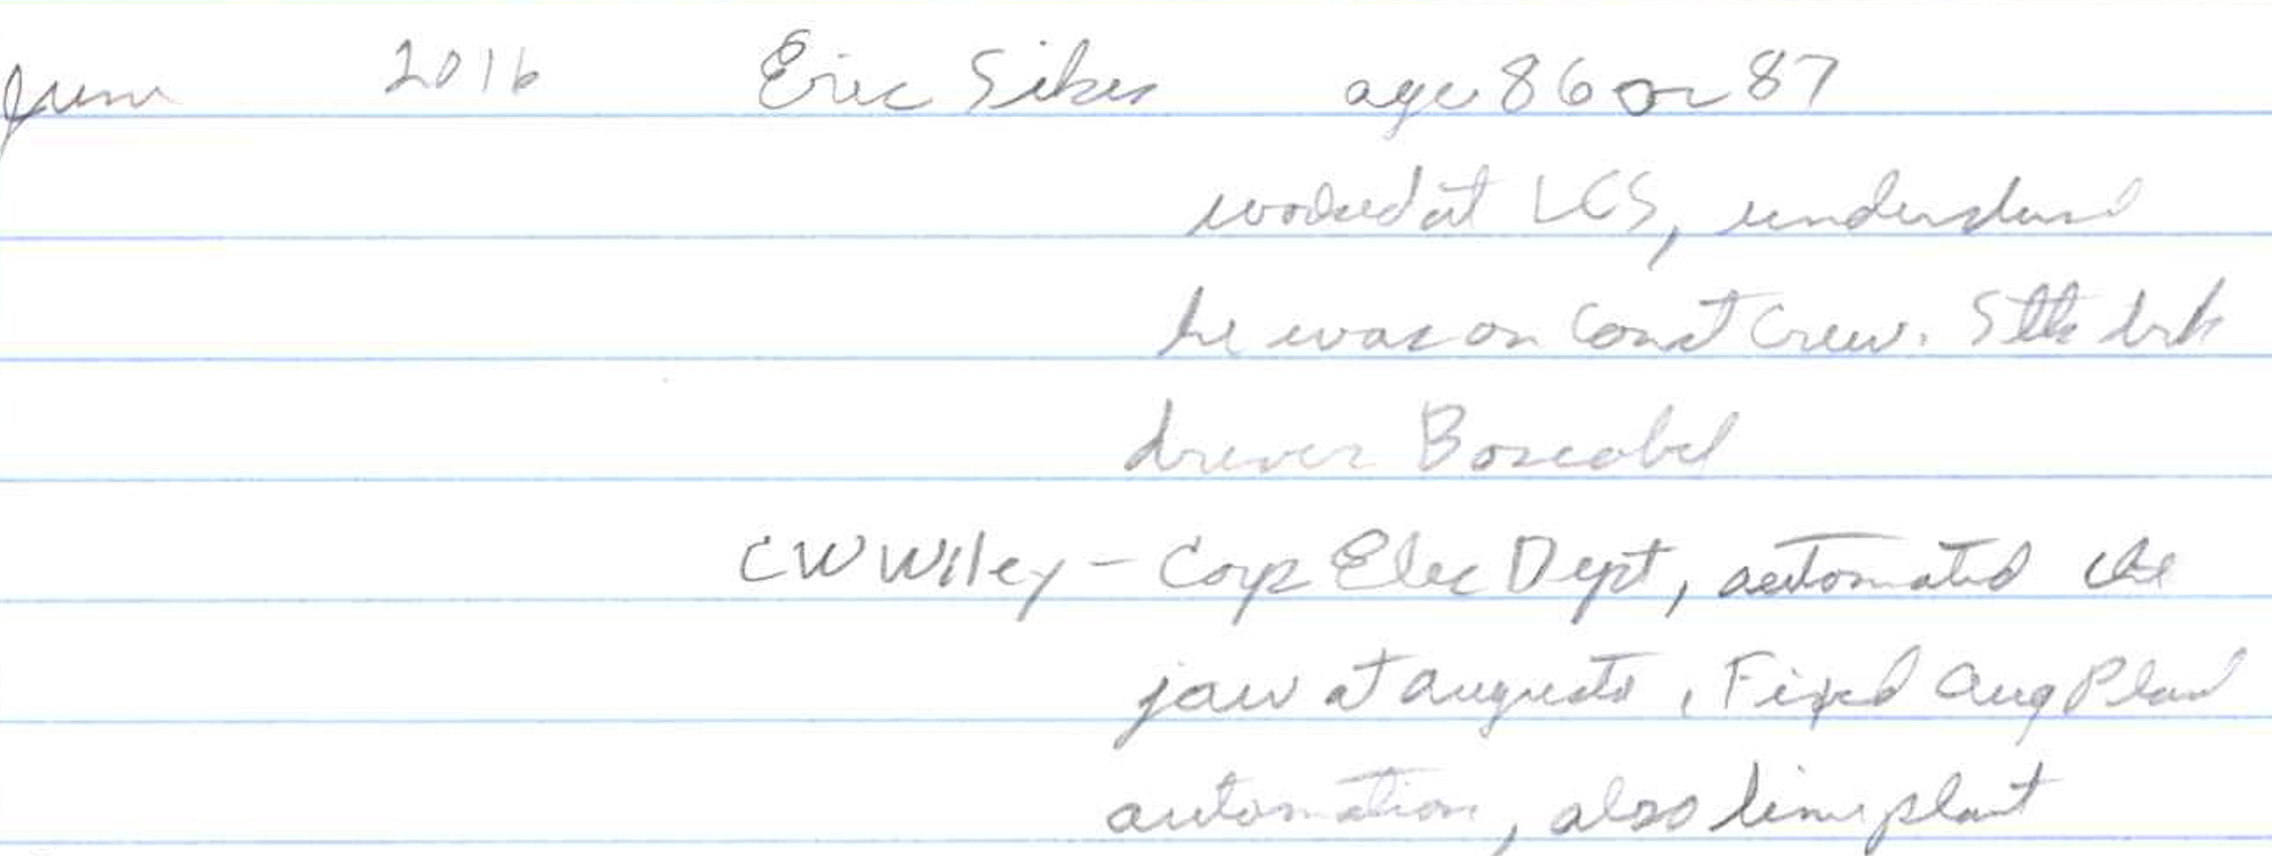 June 2016 Eric Sikes age 86 or 87
worked at LCS, understand
he was on Const Crew. Sttk
driver Boscobel
CW Wiley - Corp Elec Dept, automated the
jaw at augusta, Fixed Aug Plant
automation, also lime plant